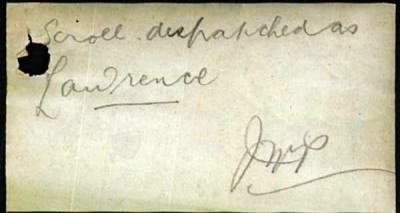 Scroll despatched as
Lawrence